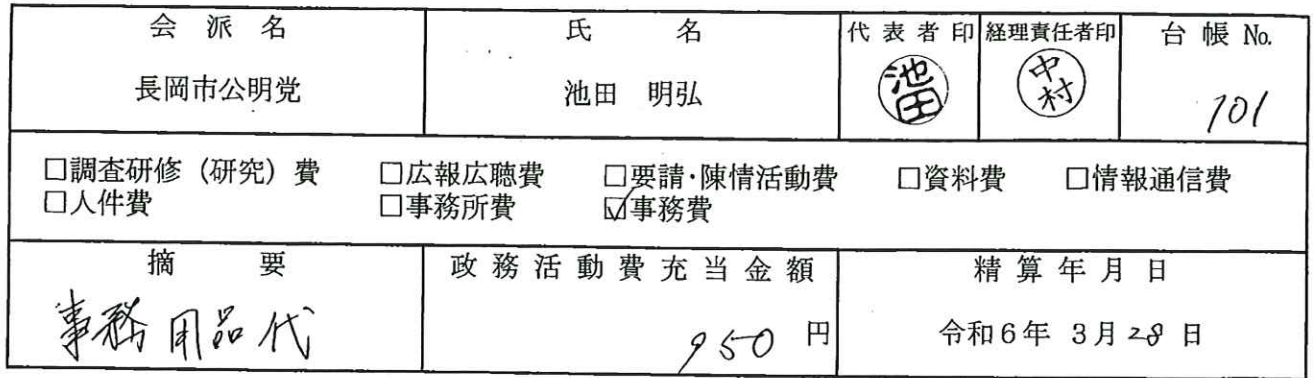 会派名 氏名 代表者印 経理責任者印 台帳No.
長岡市公明党 池田 明弘 池田 中村 101
□調査研修（研究）費 □広報広聴費 □要請・陳情活動費 □資料費 □情報通信費
□人件費 □事務所費 ☑事務費
摘要 政務活動費充当金額 精算年月日
事務用品代 950円 令和6年 3月28日